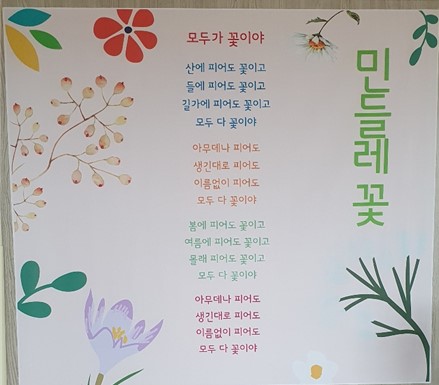 모두가 꽃이야
산에 피어도 꽃이고
들에 피어도 꽃이고
길가에 피어도 꽃이고
모두 다 꽃이야
아무데나 피어도
생긴대로 피어도
이름없이 피어도
모두 다 꽃이야
봄에 피어도 꽃이고
여름에 피어도 꽃이고
몰래 피어도 꽃이고
모두 다 꽃이야
아무데나 피어도
생긴대로 피어도
이름없이 피어도
모두 다 꽃이야
민들레 꽃